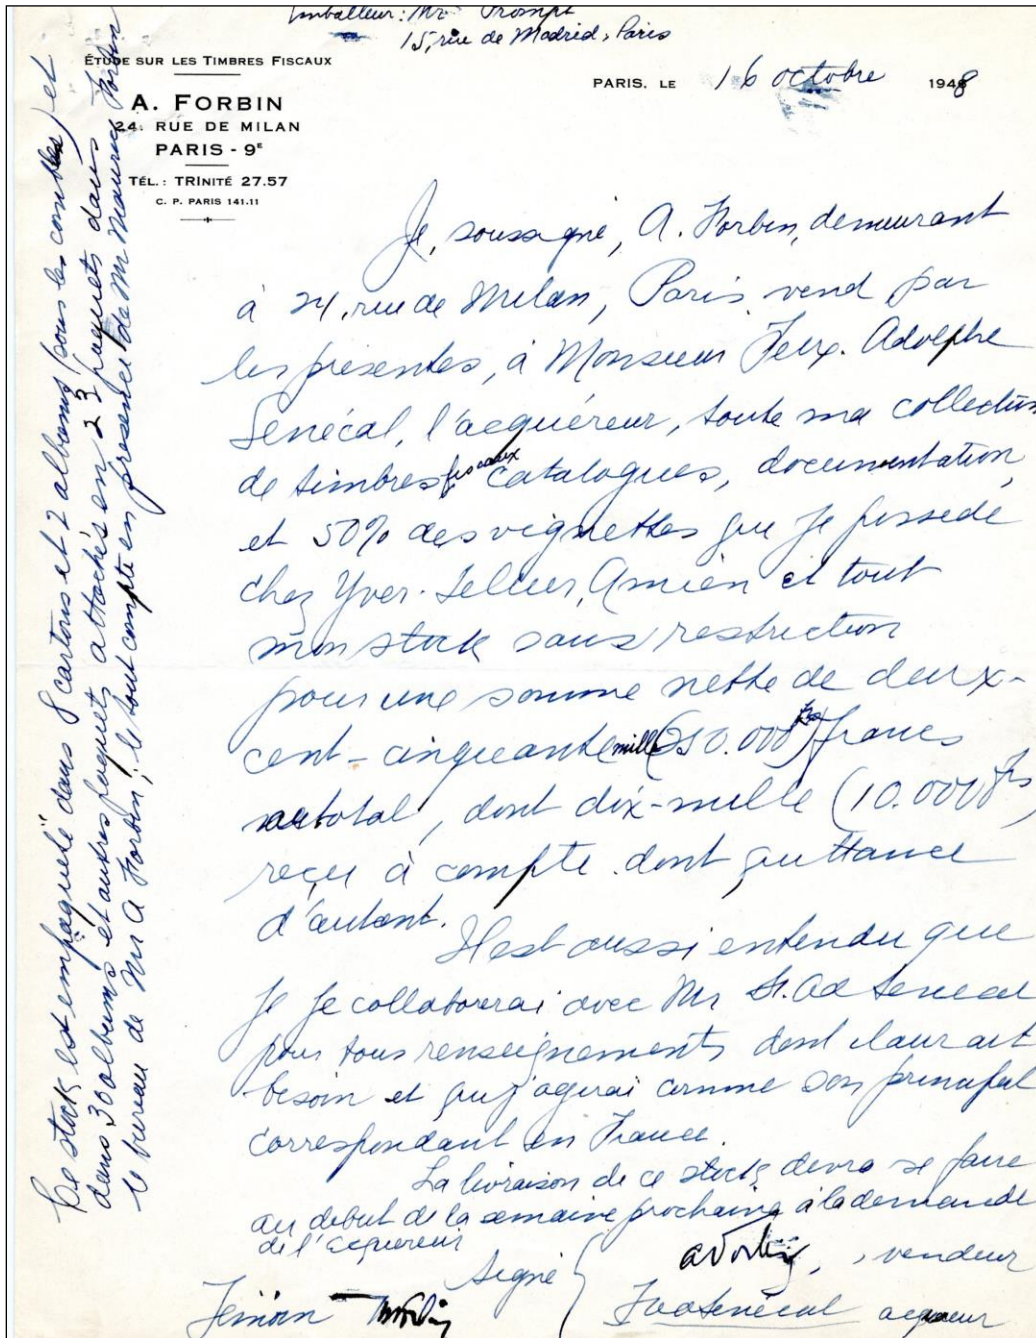 Emballeur: Mr Prompt
15, rue de Madrid, Paris
ÉTUDE SUR LES TIMBRES FISCAUX
A. FORBIN
24, RUE DE MILAN
PARIS - 9E
TÉL. : TRINITÉ 27.57
C. P. PARIS 141.11
PARIS, LE 16 octobre 1948
Je, soussigné, A. Forbin, demeurant
à 24, rue de Milan, Paris, vend par
les présentes, à Monsieur Adolphe
Senécal, l'acquéreur, toute ma collection
de timbres fiscaux catalogues, documentation,
et 50% des vignettes que je possède
chez Yver. Tellier, Amien et tout
mon stock sans restriction
pour une somme nette de deux-
cent-cinquante mille (250.000 frs) francs
au total, dont dix-mille (10.000 frs)
reçu à compte dont quittance
d'autant.
Il est aussi entendu que
je je collaborerai avec Mr Ad Senecal
pour tous renseignements dont il aurait
besoin et que j'agirai comme son principal
correspondant en France.
La livraison de ce stock devra se faire
au debut de la semaine prochaine à la demande
de l'acquereur
Signé { AForbin, , vendeur
Senécal acquereur
Témoin
Ce stock est empaqueté dans 8 cartons et 2 albums (sous les combles) et
dans 30 albums et autres paquets attachés en 23 paquets dans
le bureau de Mr A Forbin; le tout compté en présence de Mr Maurice Forbin